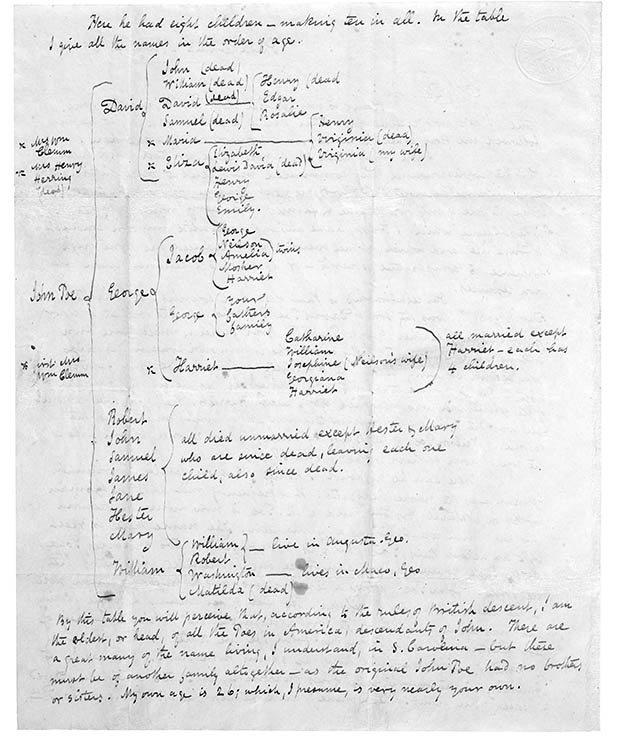 Here he had eight children – making ten in all. In the table
I give all the names in the order of age.
John (dead)
William (dead)
David (dead)
Samuel (dead)
* Maria
* Eliza
Henry (dead
Edgar
Rosalie
Henry
Virginia (dead)
Virginia (my wife)
David
* Mrs Wm
Clemm
* Mrs Henry
Herring
(dead)
Elizabeth
Lewis David (dead)
Henry
George
Emily.
John Poe
George
Jacob
George
Neilson
Amelia
Mosher
Harriet
twins
George
Your
Fathers
Family
* Harriet
Catharine
William
Josephine (Neilson's wife)
Georgiana
Harriet
all married except
Harriet – each has
4 children.
* first Mrs
Wm Clemm
Robert
John
Samuel
James
Jane
Hester
Mary
all died unmarried except Hester & Mary
who are since dead, leaving each one
child, also since dead.
William
William
Robert
– live in Augusta. Geo.
Washington — lives in Maco, Geo
Matilda (dead)
By this table you will perceive that, according to the rules of British descent, I am
the oldest, or head, of all the Poes in America, descendants of John. There are
a great many of the name living, I understand, in S. Carolina – but these
must be of another family altogether – as the original John Poe had no brothers
or sisters. My own age is 26; which, I presume, is very nearly your own.